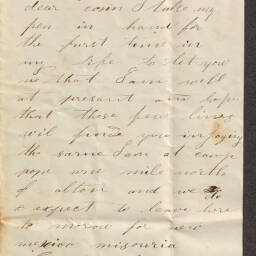 dear cosin I take my
pen in hand for
the furst time in
my life to let you
no that I am well
at presant and hope
that these few lines
wil find you injoying
the same I am at camp
pope one mile north
of alton and we do
expect to leave here
to morow for new
mexico misouria